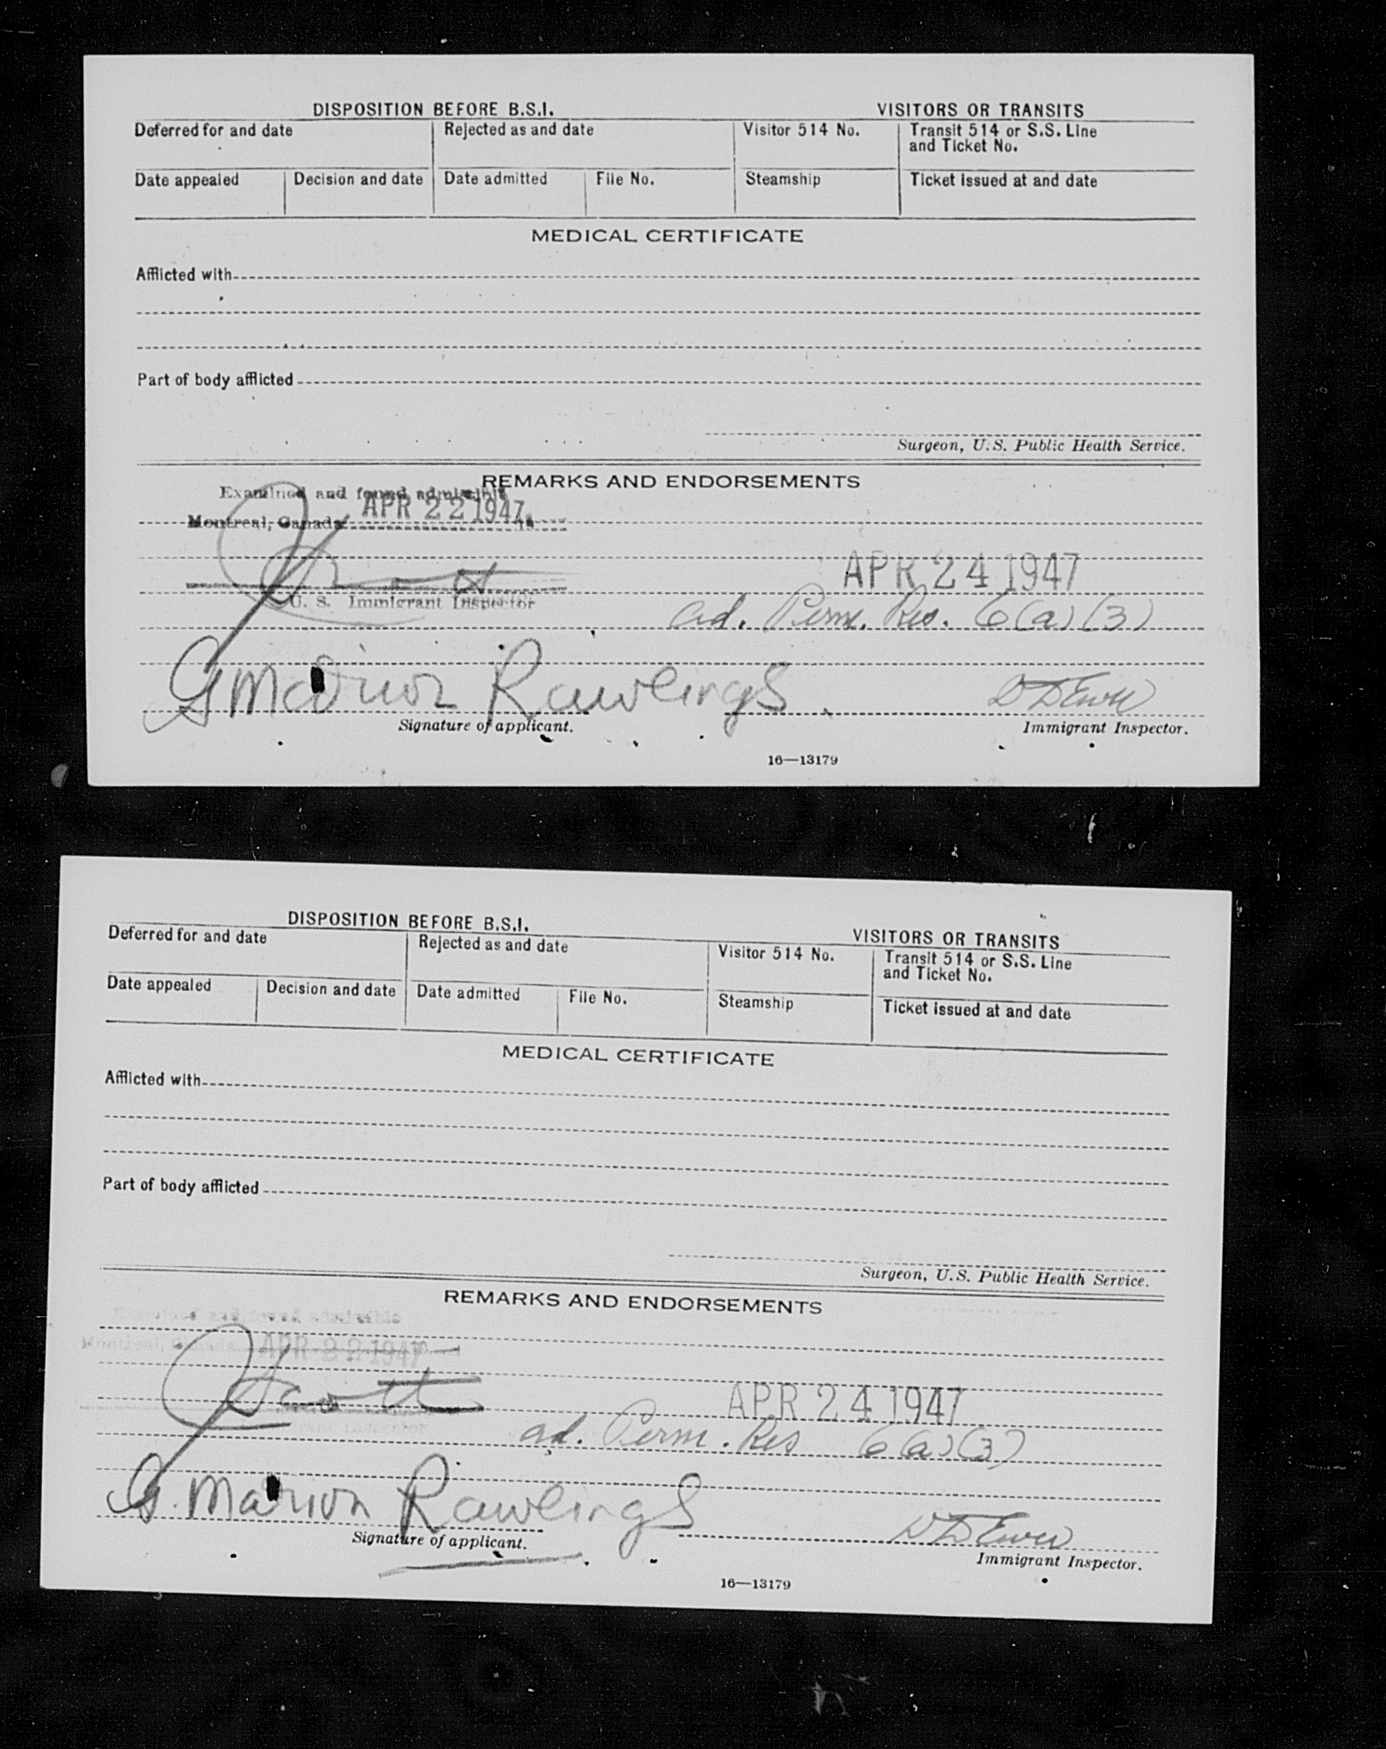 DISPOSITION BEFORE B.S.I. VISITORS OR TRANSITS
Deferred for and date Rejected as and date Visitor 514 No. Transit 514 or S.S. Line
and Ticket No.
Date appealed Decision and date Date admitted File No. Steamship Ticket issued at and date
MEDICAL CERTIFICATE
Afflicted with
Part of body afflicted
Surgeon, U.S. Public Health Service.
REMARKS AND ENDORSEMENTS
Examined and found admissible
Montreal, Canada APR 22 1947 19
APR 24 1947
U. S. Immigrant Inspector
ad. Perm. Res. 6(a)(3)
G Marion Rawlings.
Signature of applicant. Immigrant Inspector.
16—13179
DISPOSITION BEFORE B.S.I. VISITORS OR TRANSITS
Deferred for and date Rejected as and date Visitor 514 No. Transit 514 or S.S. Line
and Ticket No.
Date appealed Decision and date Date admitted File No. Steamship Ticket issued at and date
MEDICAL CERTIFICATE
Afflicted with
Part of body afflicted
Surgeon, U.S. Public Health Service.
REMARKS AND ENDORSEMENTS
Examined and found admissible
Montreal, Canada APR 22 1947
APR 24 1947
ad. Perm. Res 6(a)(3)
G. Marion Rawlings
Signature of applicant. Immigrant Inspector.
16—13179